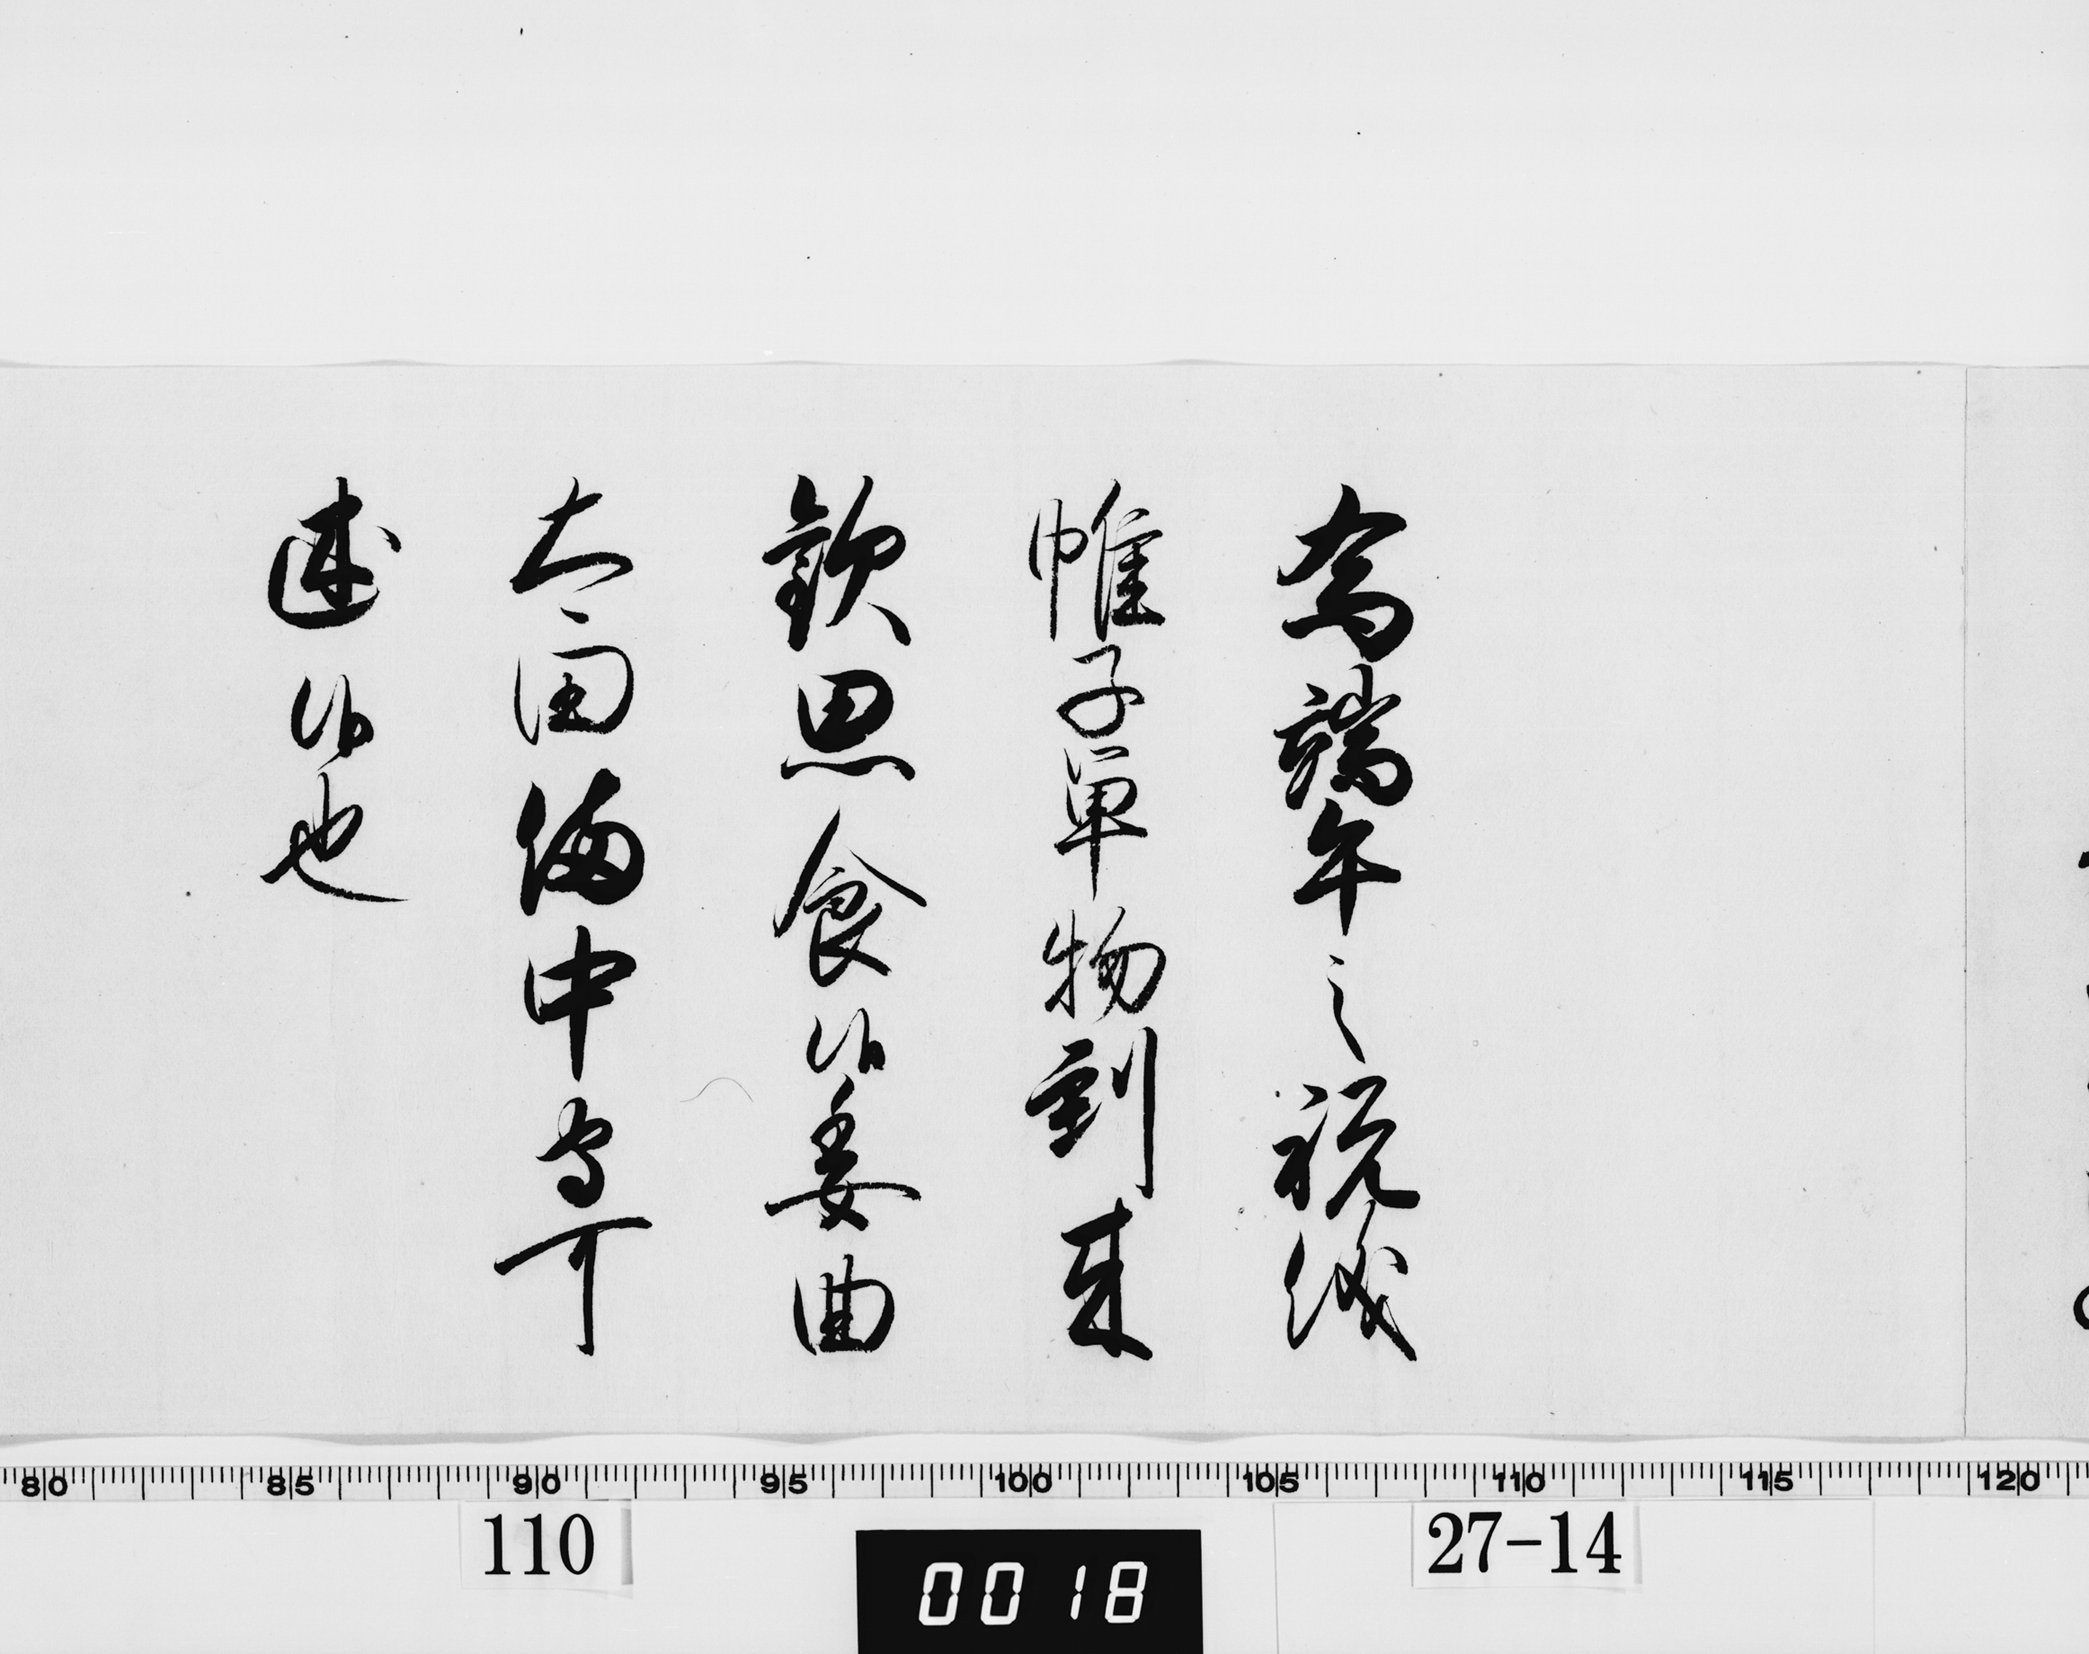 為端午之祝儀
帷子単物到来
歓思食候委曲
太田備中守可
述候也
80 85 90 95 100 105 110 115 120
110
27-14
0018